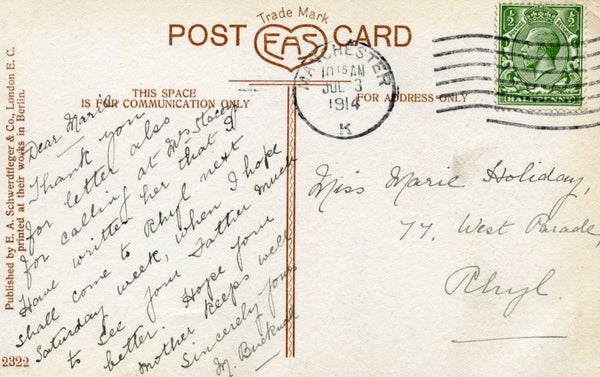 Trade Mark
POST EAS CARD
THIS SPACE
IS FOR COMMUNICATION ONLY
FOR ADDRESS ONLY
MANCHESTER
10 15 AM
JUL 3
1914
K
½ ½
HALFPENNY
Dear Marie
Thank you
for letter also
for calling at Mrs Stacey's
Have written her that I
shall come to Rhyl next
Saturday week, when I hope
to see your Father much
better. Hope your
mother keeps well
Sincerely yours
M.
Miss Marie Holiday,
77. West Parade,
Rhyl.
Published by E. A. Schwerdtfeger & Co., London E. C.
printed at their works in Berlin.
2322